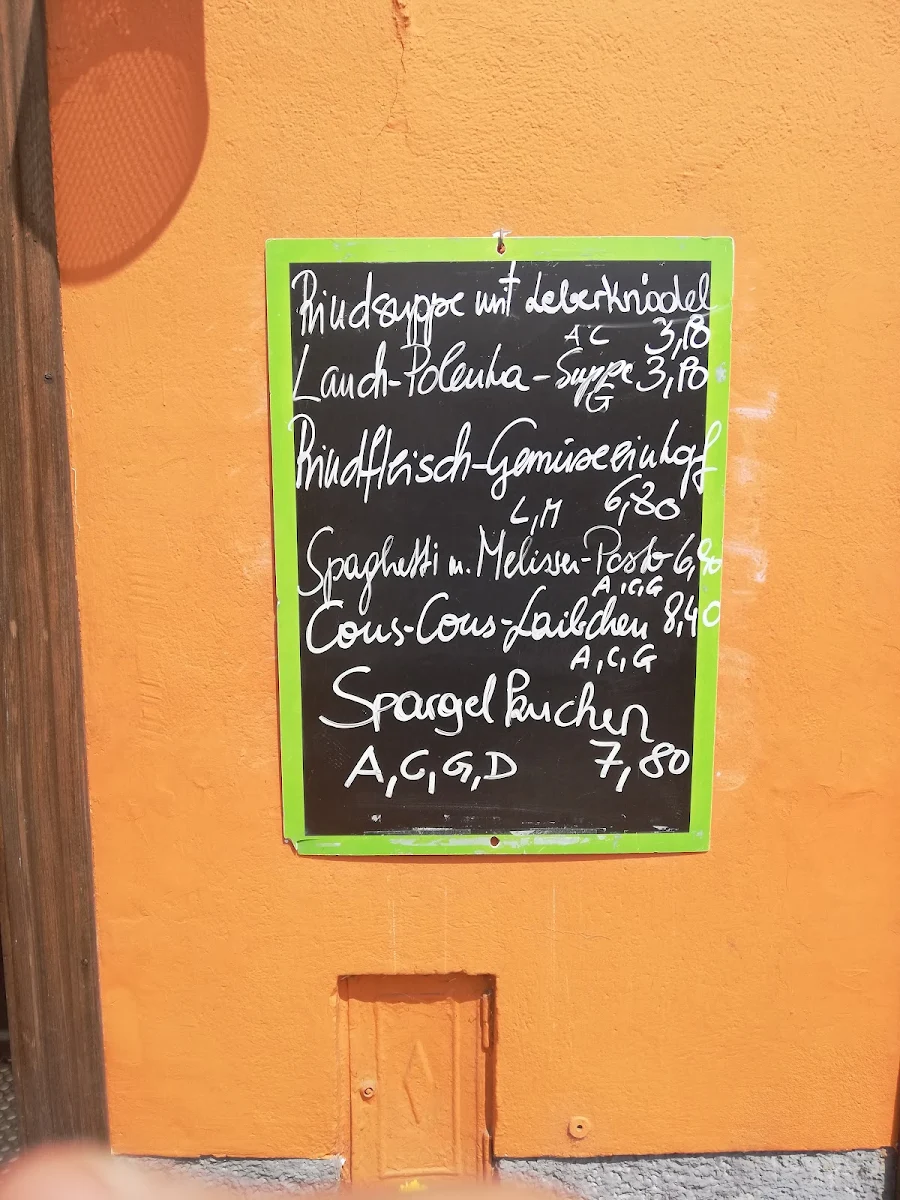 Rindsuppe mit Leberknödel
A C 3,80
Lauch-Polenta-Suppe 3,80
G
Rindfleisch-Gemüseeintopf
L, M 6,80
Spaghetti m. Melissen-Pesto 6,90
A, C, G
Cous-Cous-Laibchen 8,40
A, C, G
Spargelkuchen
A, C, G, D 7,80